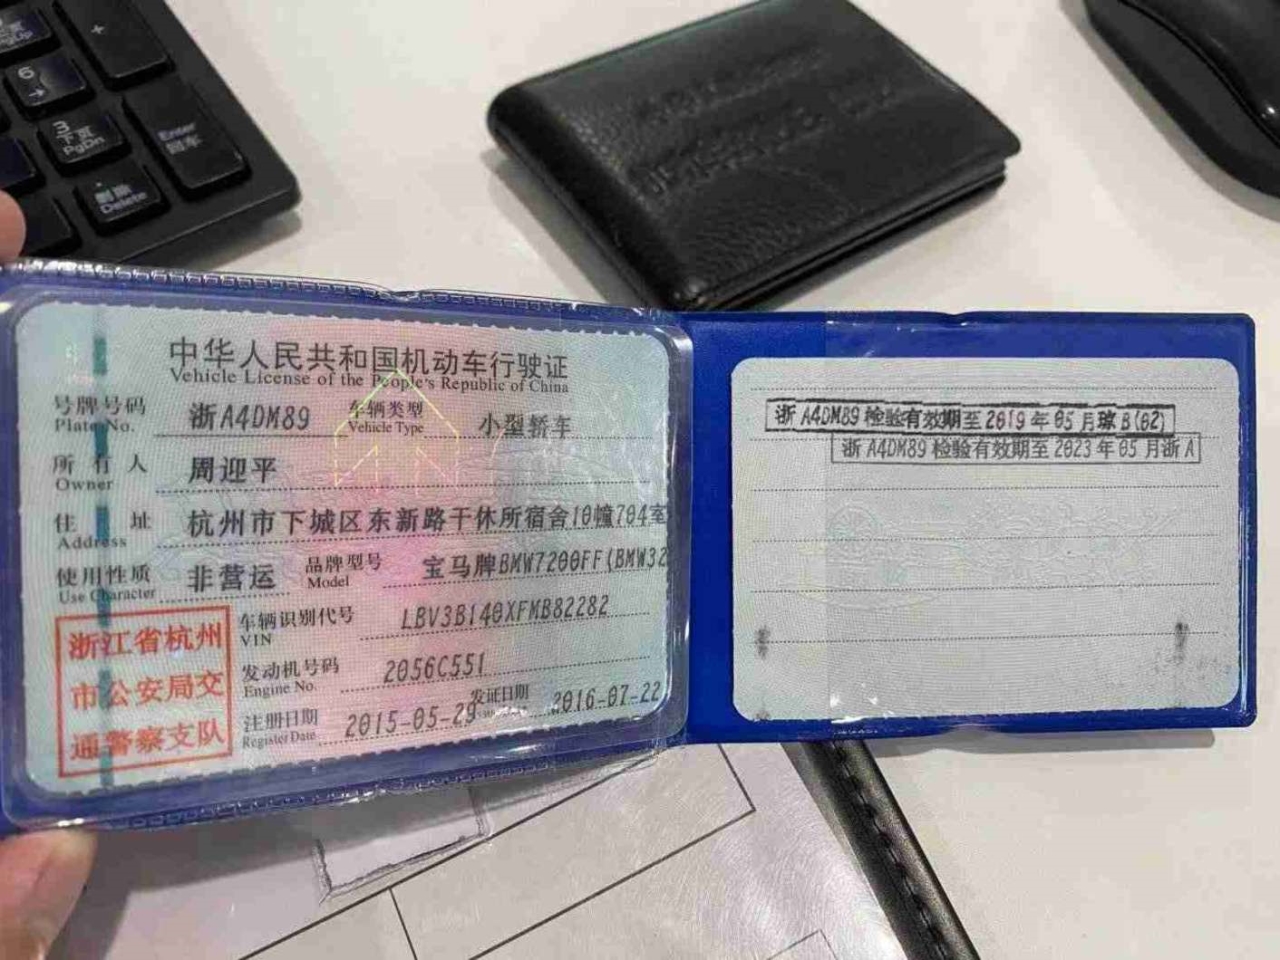 +
6
→
3
下页
PgDn
Enter
回车
删除
Delete
中华人民共和国机动车行驶证
Vehicle License of the People's Republic of China
号牌号码 浙A4DM89 车辆类型 小型轿车
Plate No. Vehicle Type
所有人 周迎平
Owner
住址 杭州市下城区东新路干休所宿舍10幢704室
Address
使用性质 非营运 品牌型号 宝马牌BMW7200FF(BMW32
Use Character Model
浙江省杭州
市公安局交
通警察支队
车辆识别代号 LBV3B140XFMB82282
VIN
发动机号码 2056C551
Engine No.
注册日期 2015-05-29 发证日期 2016-07-22
Register Date
浙A4DM89检验有效期至2019年05月琼B(02)
浙A4DM89检验有效期至2023年05月浙A